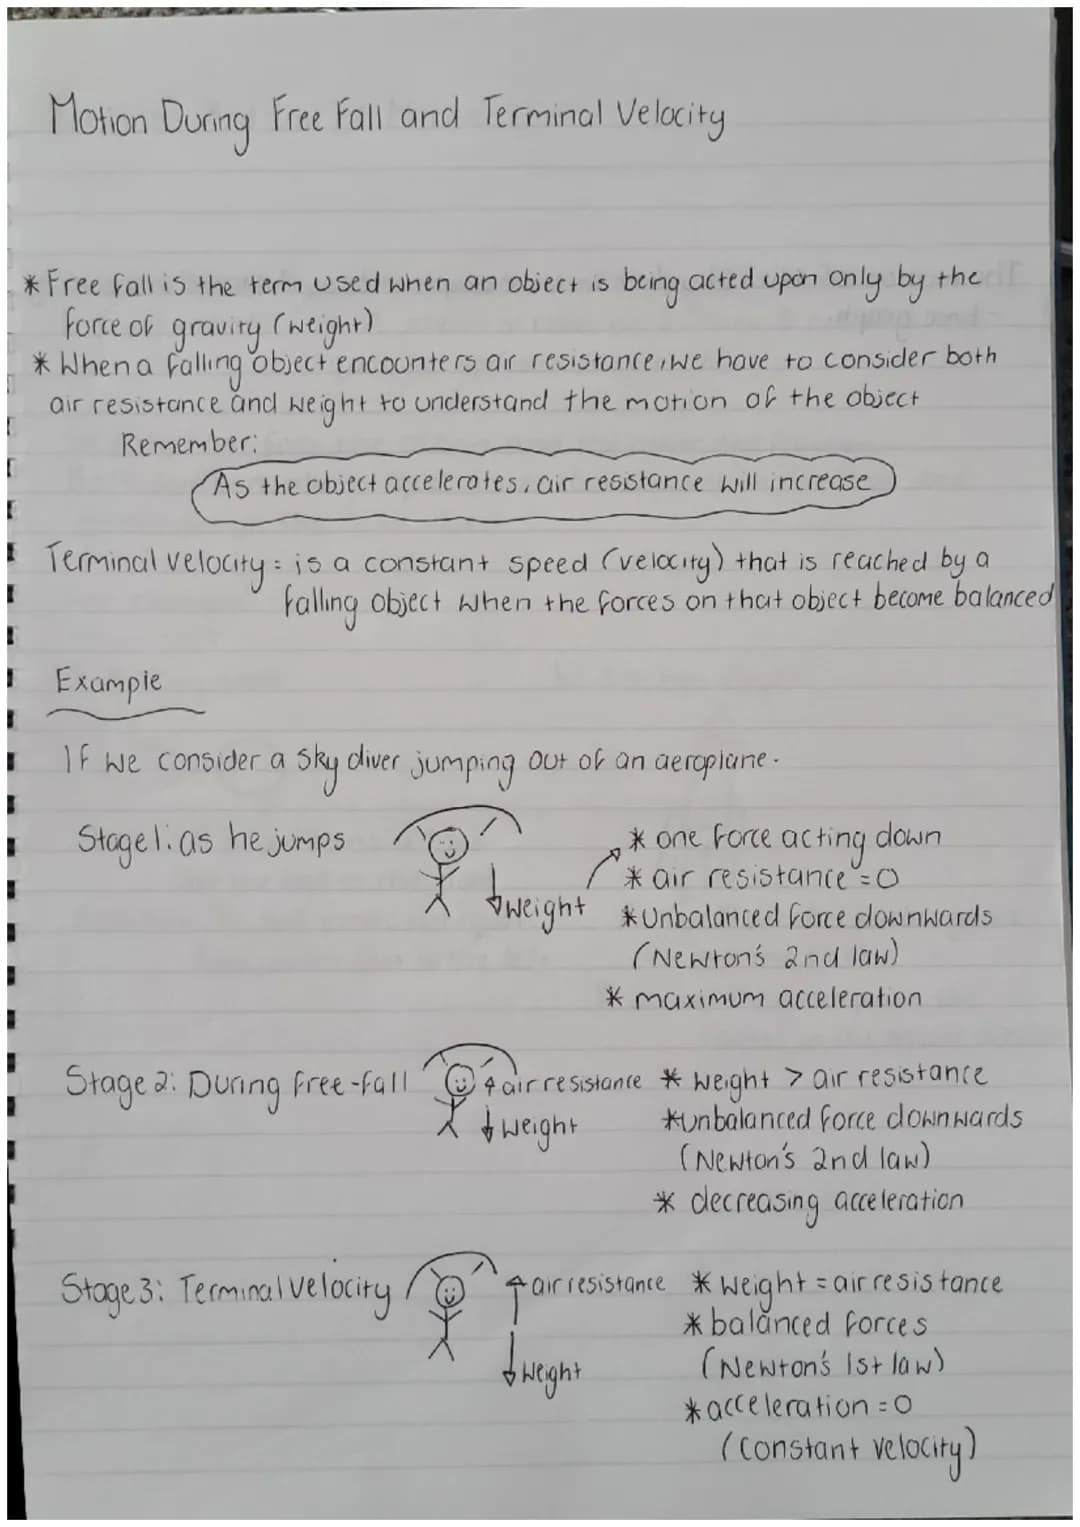 Motion During Free Fall and Terminal Velocity
* Free fall is the term used when an object is being acted upon only by the
force of gravity (weight)
* When a falling object encounters air resistance, we have to consider both
air resistance and weight to understand the motion of the object
Remember:
As the object accelerates, air resistance will increase
Terminal velocity: is a constant speed (velocity) that is reached by a
falling object when the forces on that object become balanced
Example
If we consider a sky diver jumping out of an aeroplane.
Stage 1: as he jumps
weight
* one force acting down
* air resistance = 0
* Unbalanced force downwards
(Newton's 2nd law)
* maximum acceleration
Stage 2: During free-fall
air resistance
weight
* weight > air resistance
* unbalanced force downwards
(Newton's 2nd law)
* decreasing acceleration
Stage 3: Terminal Velocity
air resistance
weight
* weight = air resistance
* balanced forces
(Newton's 1st law)
* acceleration = 0
(constant velocity)